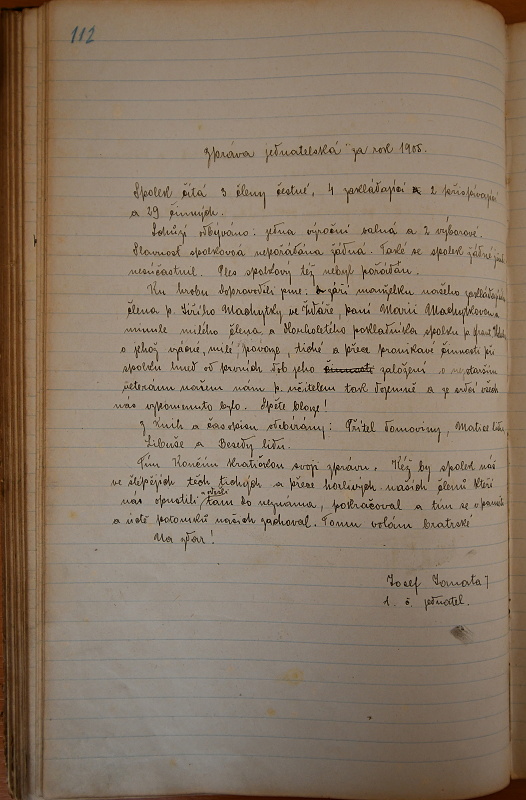 112
Zpráva jednatelská za rok 1905.
Spolek čítá 3 členy čestné, 4 zakládající a 2 přispívající
a 29 činných.
Schůzí odbýváno: jedna výroční valná a 2 výborové.
Slavnost spolková nepořádána žádná. Také se spolek žádné jiné
nesúčastnil. Ples spolkový též nebyl pořádán.
Ku hrobu doprovodili jsme: v září manželku našeho zakládajícího
člena p. Jiřího Machytky ve Žďáře, paní Marii Machytkovou a
minule milého člena a dlouholetého pokladníka spolku p.
o jehož vzácné, milé povaze, tiché a přece pronikavé činnosti při
spolku hned od prvních dob jeho činnosti založení o nejstarším
veteránu našem nám p. učitelem tak dojemně a ze srdcí všech
nás vzpomenuto bylo. Spěte blaze!
Z knih a časopisů odebírány: Přítel domoviny, Matice lidu,
Libuše a Besedy lidu.
Tím končím kratičkou svoji zprávu. Kéž by spolek náš
ve šlépějích těch tichých a přece horlivých našich členů kteří
nás opustili odešli tam do neznáma, pokračoval a tím se v paměti
a úctě potomků našich zachoval. Tomu volám bratrské
Na zdar!
Josef Janata
t. č. jednatel.